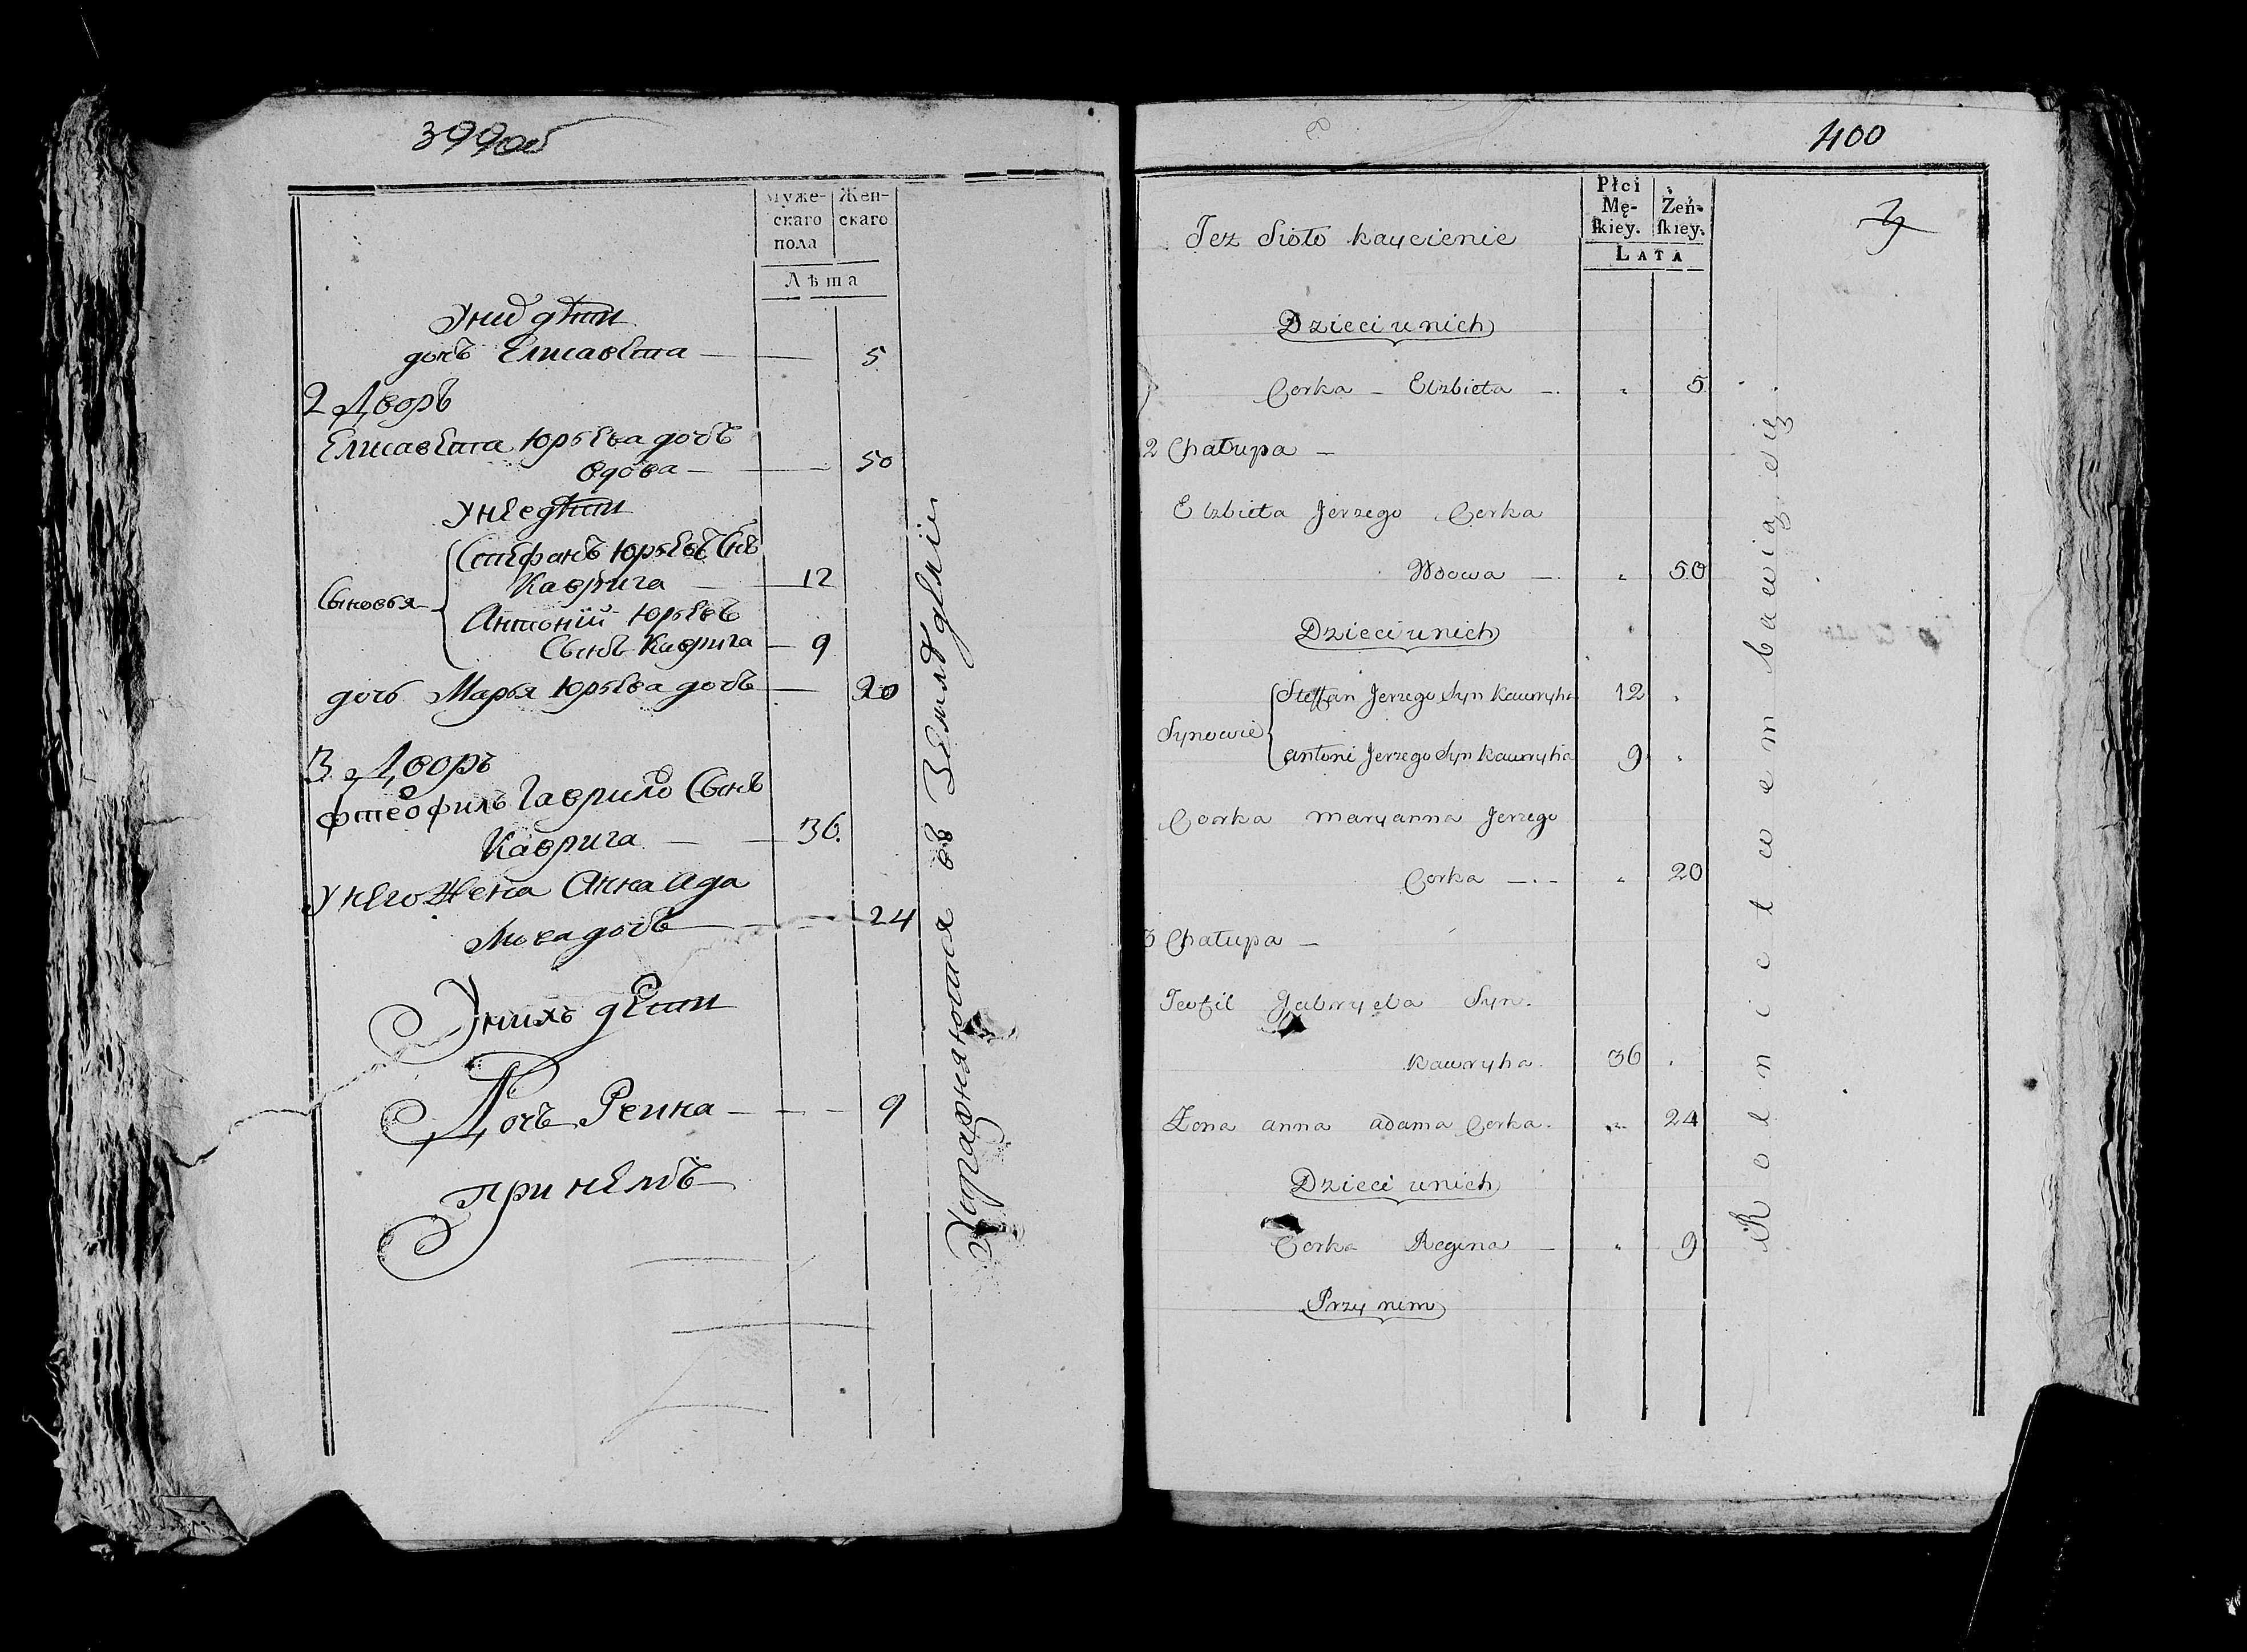 399об
Муже-
скаго
пола
Жен-
скаго
Лѣта
У них дѣти
дочь Елисавета — — 5
2 Дворъ
Елисавета Юрьева дочь
вдова — — 50
У нее дѣти
Сыновья
Стефанъ Юрьевъ Снъ
Каврига — 12
Антоній Юрьевъ
Сынъ Каврига — 9
дочь Марья Юрьева дочь — 20
3 Дворъ
Фтеофилъ Гаврило Сынъ
Каврига — 36.
У него Жена Анна Ада
мова дочь — 24
У нихъ дѣти
Дочь Реина — — 9
при немъ
Упражняются въ Землѣделіи
400
Tez Sioło Kaycienie
Płci
Mę-
ſkiey.
Żeń-
ſkiey.
LATA
Dzieci u nich
Corka – Elzbieta – " 5
2 Chałupa –
Elzbieta Jerzego Corka
Wdowa – " 50
Dzieci u nich
Synowie
Steffan Jerzego Syn Kawryha 12 "
Antoni Jerzego Syn Kawryha 9 "
Coorka Maryanna Jerzego
Corka – " 20
3 Chałupa –
Teofil Gabryela Syn.
Kawryha. 36 "
Zona Anna Adama Corka. " 24
Dzieci u nich
Corka Regina – " 9
Przy nim
Rolnictwem bawią się